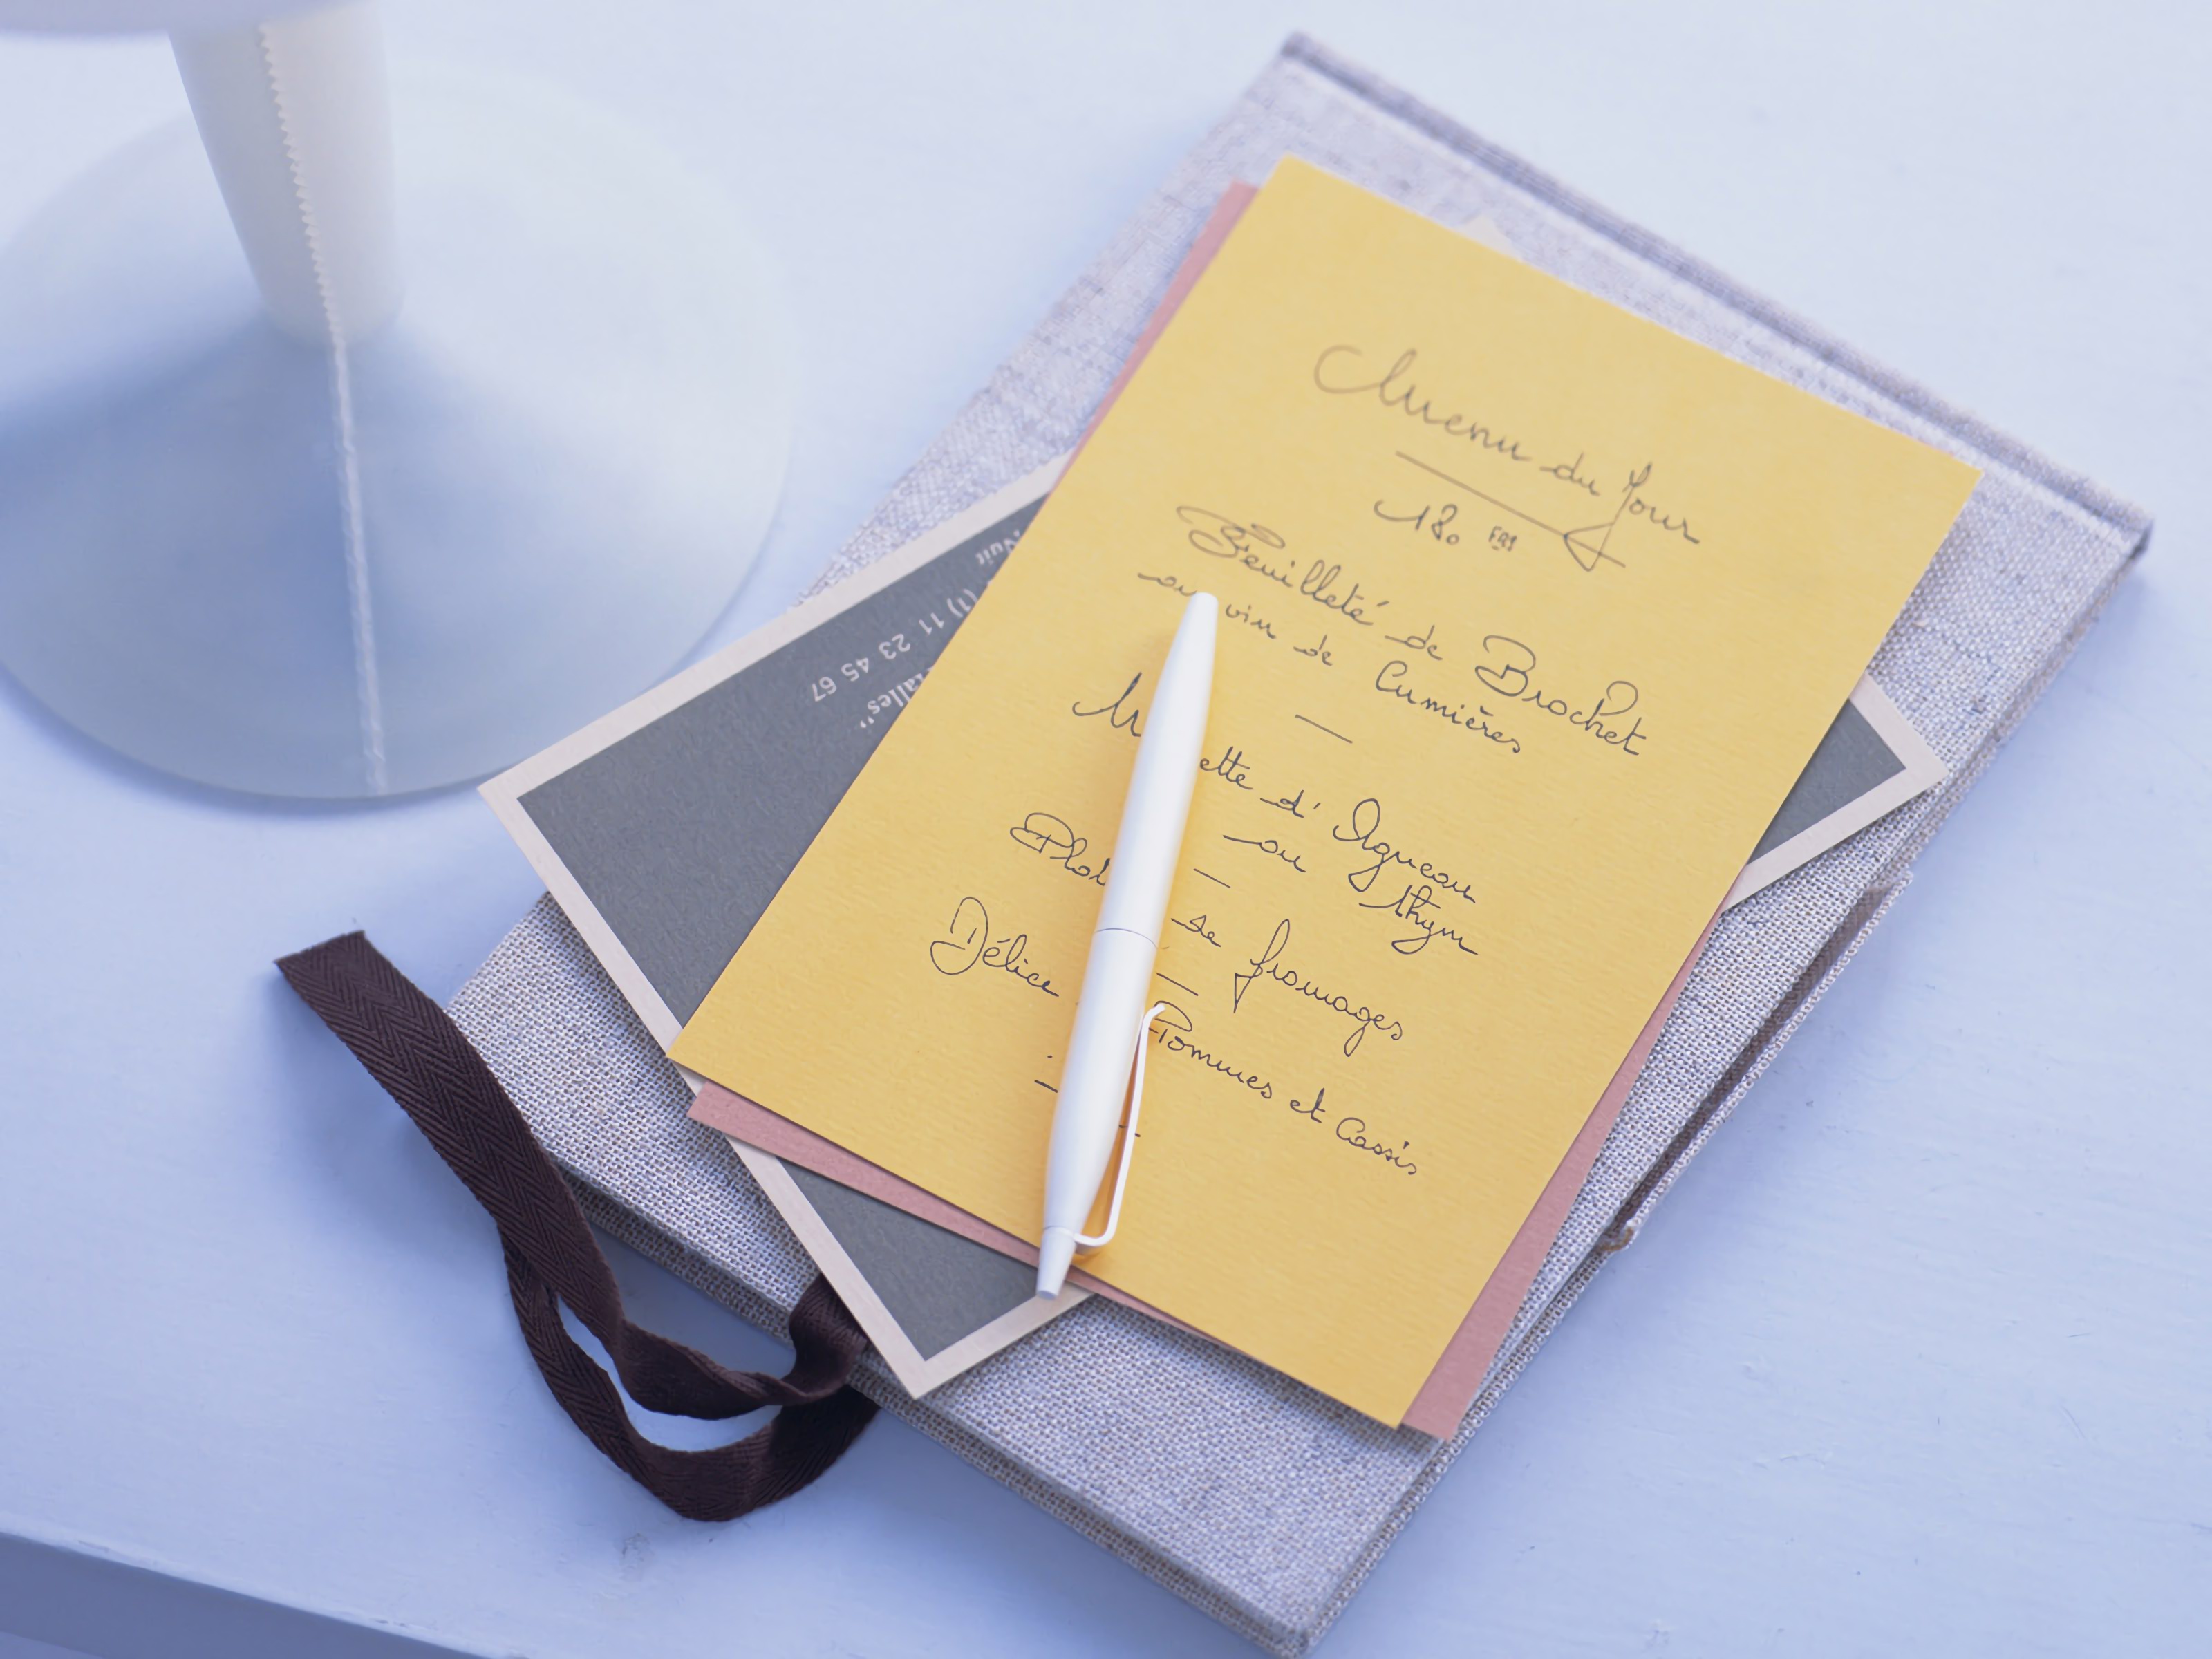 Menu du Jour
180 FRS
Feuilleté de Brochet
au vin de Cumières
—
ette d'Agneau
au thym
—
de fromages
—
Délice Pommes et Cassis
Nuit
(1) 11 23 45 67